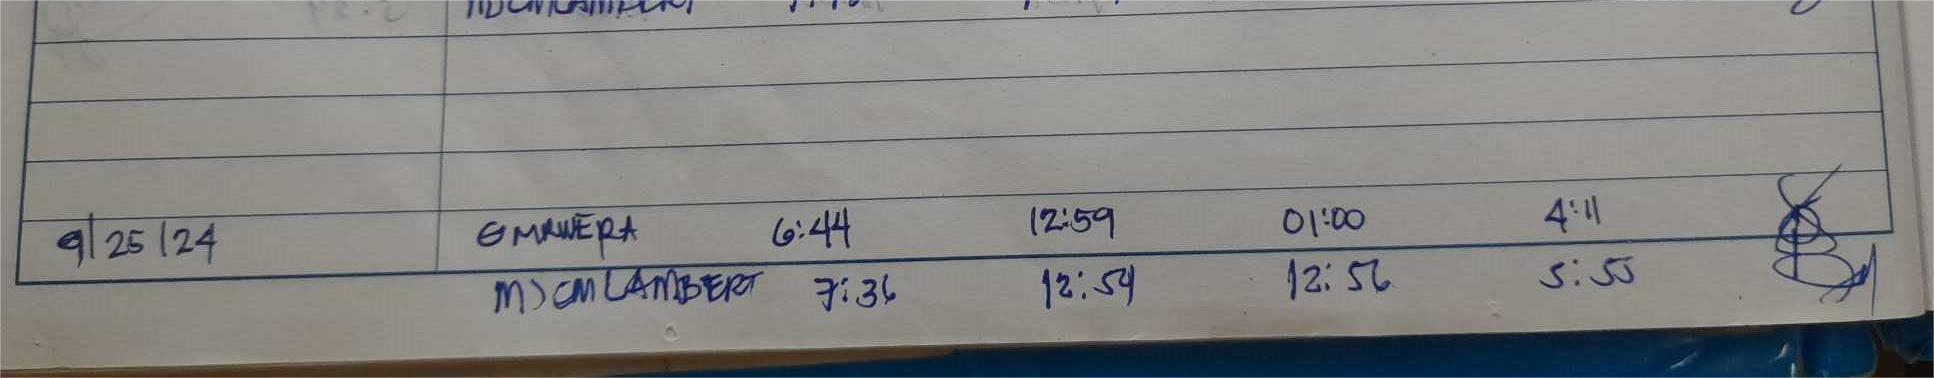 9/25/24 GMRWERA 6:44 12:59 01:00 4:11
MJCMLAMBERT 7:36 12:54 12:56 5:55